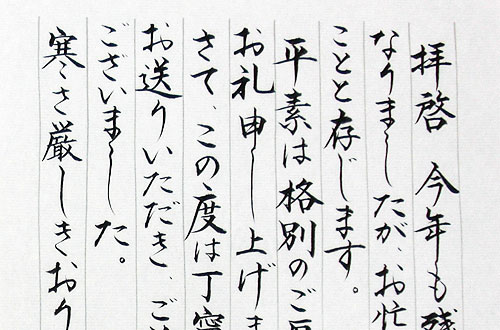 拝啓 今年も残
なりましたが、お忙
ことと存じます。
平素は格別のご
お礼申し上げま
さて、この度は丁寧
お送りいただき、ご
ございました。
寒さ厳しきおり